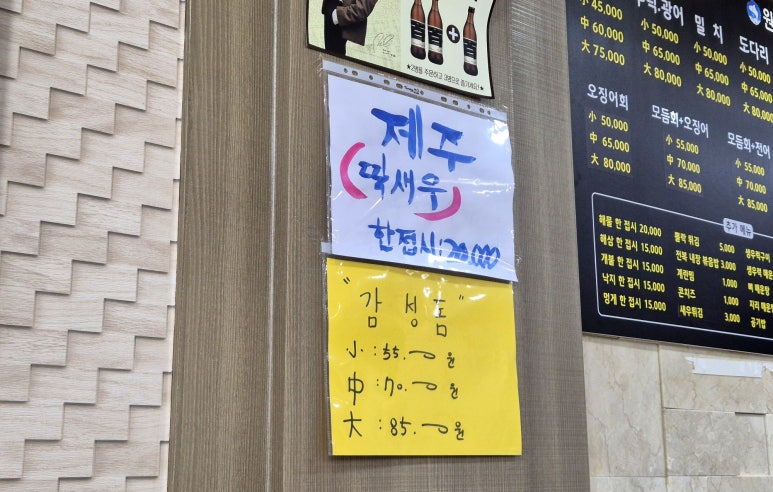 ★2병을 주문하고 3병으로 즐기세요!★
제주
(딱새우)
한접시:20,000
"감성돔"
小 : 55.000원
中 : 70.000원
大 : 85.000원
小 45,000
中 60,000
大 75,000
광어
小 50,000
中 65,000
大 80,000
밀치
小 50,000
中 65,000
大 80,000
도다리
小 50,000
中 65,000
大 80,000
오징어회
小 50,000
中 65,000
大 80,000
모듬회+오징어
小 55,000
中 70,000
大 85,000
모듬회+전어
小 55,000
中 70,000
大 85,000
추가 메뉴
해물 한 접시 20,000
해삼 한 접시 15,000
개불 한 접시 15,000
낙지 한 접시 15,000
멍게 한 접시 15,000
볼락 튀김 5,000
전복 내장 볶음밥 3,000
계란찜 1,000
콘치즈 1,000
새우튀김 3,000
생우럭구이
생우럭 매운탕
뼈 매운탕
지리 매운탕
공기밥